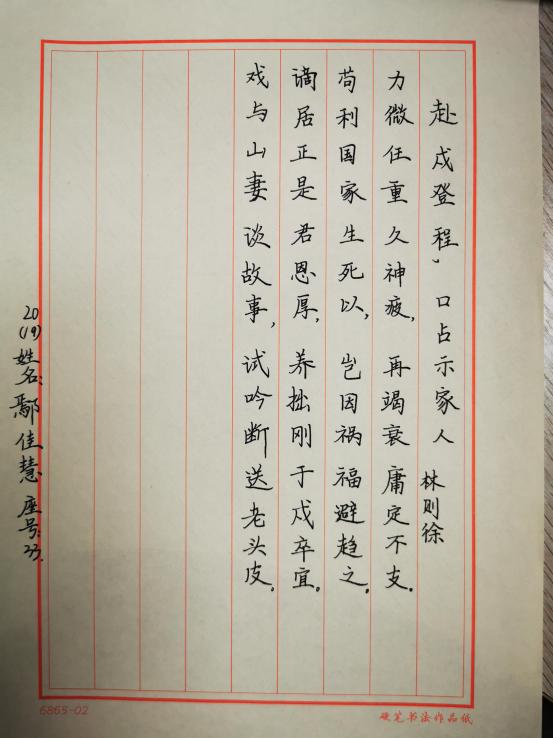 赴戍登程，口占示家人 林则徐
力微任重久神疲，再竭衰庸定不支。
苟利国家生死以，岂因祸福避趋之。
谪居正是君恩厚，养拙刚于戍卒宜。
戏与山妻谈故事，试吟断送老头皮。
20(19) 姓名：鄢佳慧 座号：23.
6865-02
硬笔书法作品纸